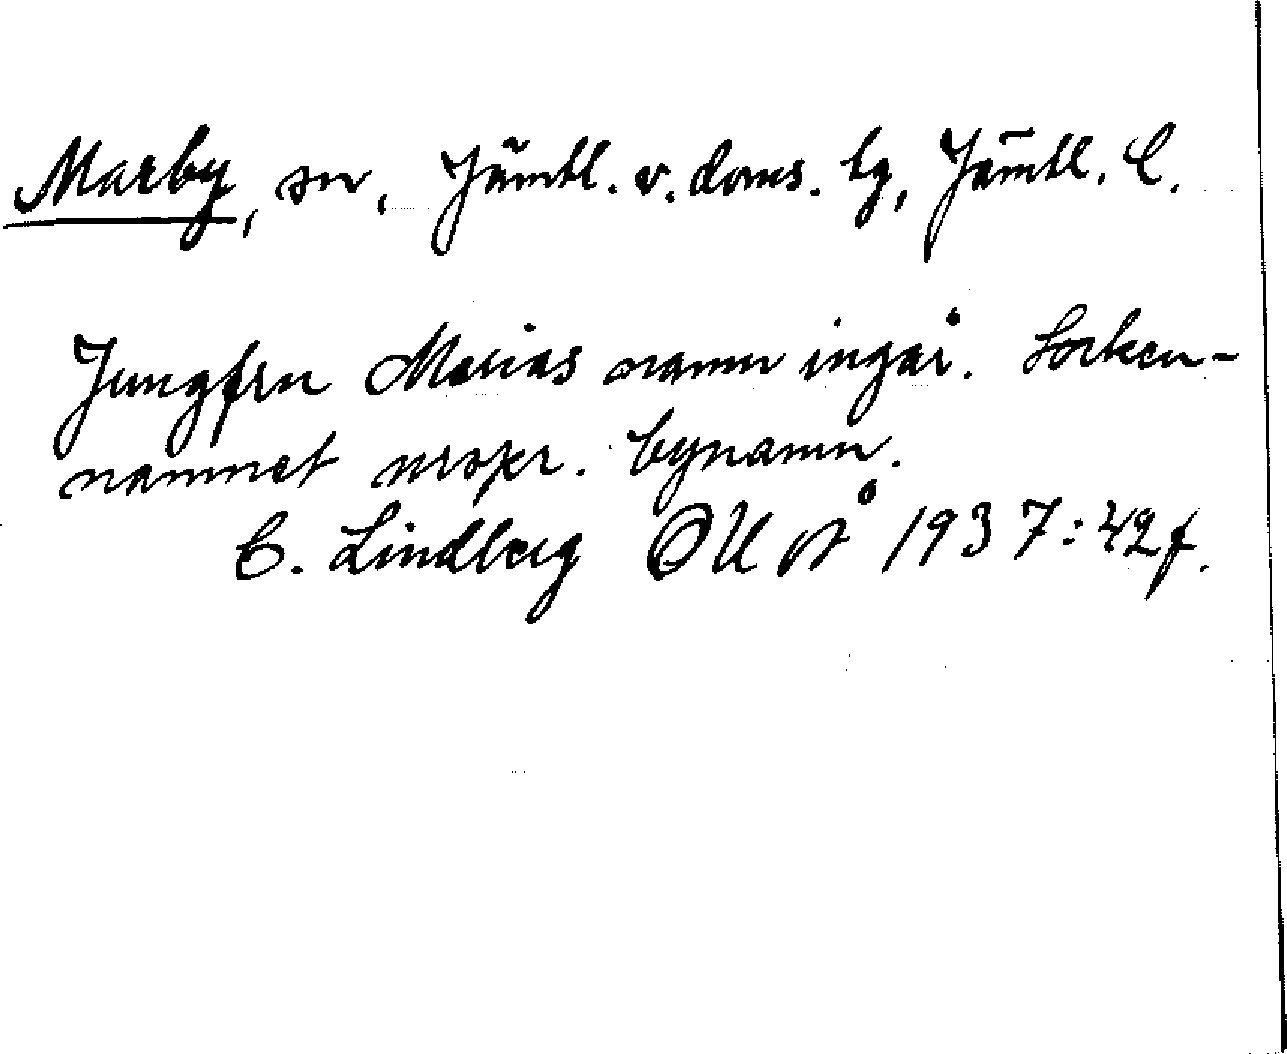 Marby, sn, Jämtl. v. doms. lg, Jämtl. l.
Jungfru Marias namn ingår. Socken-
namnet urspr. bynamn.
C. Lindberg OUÅ 1937:42f.